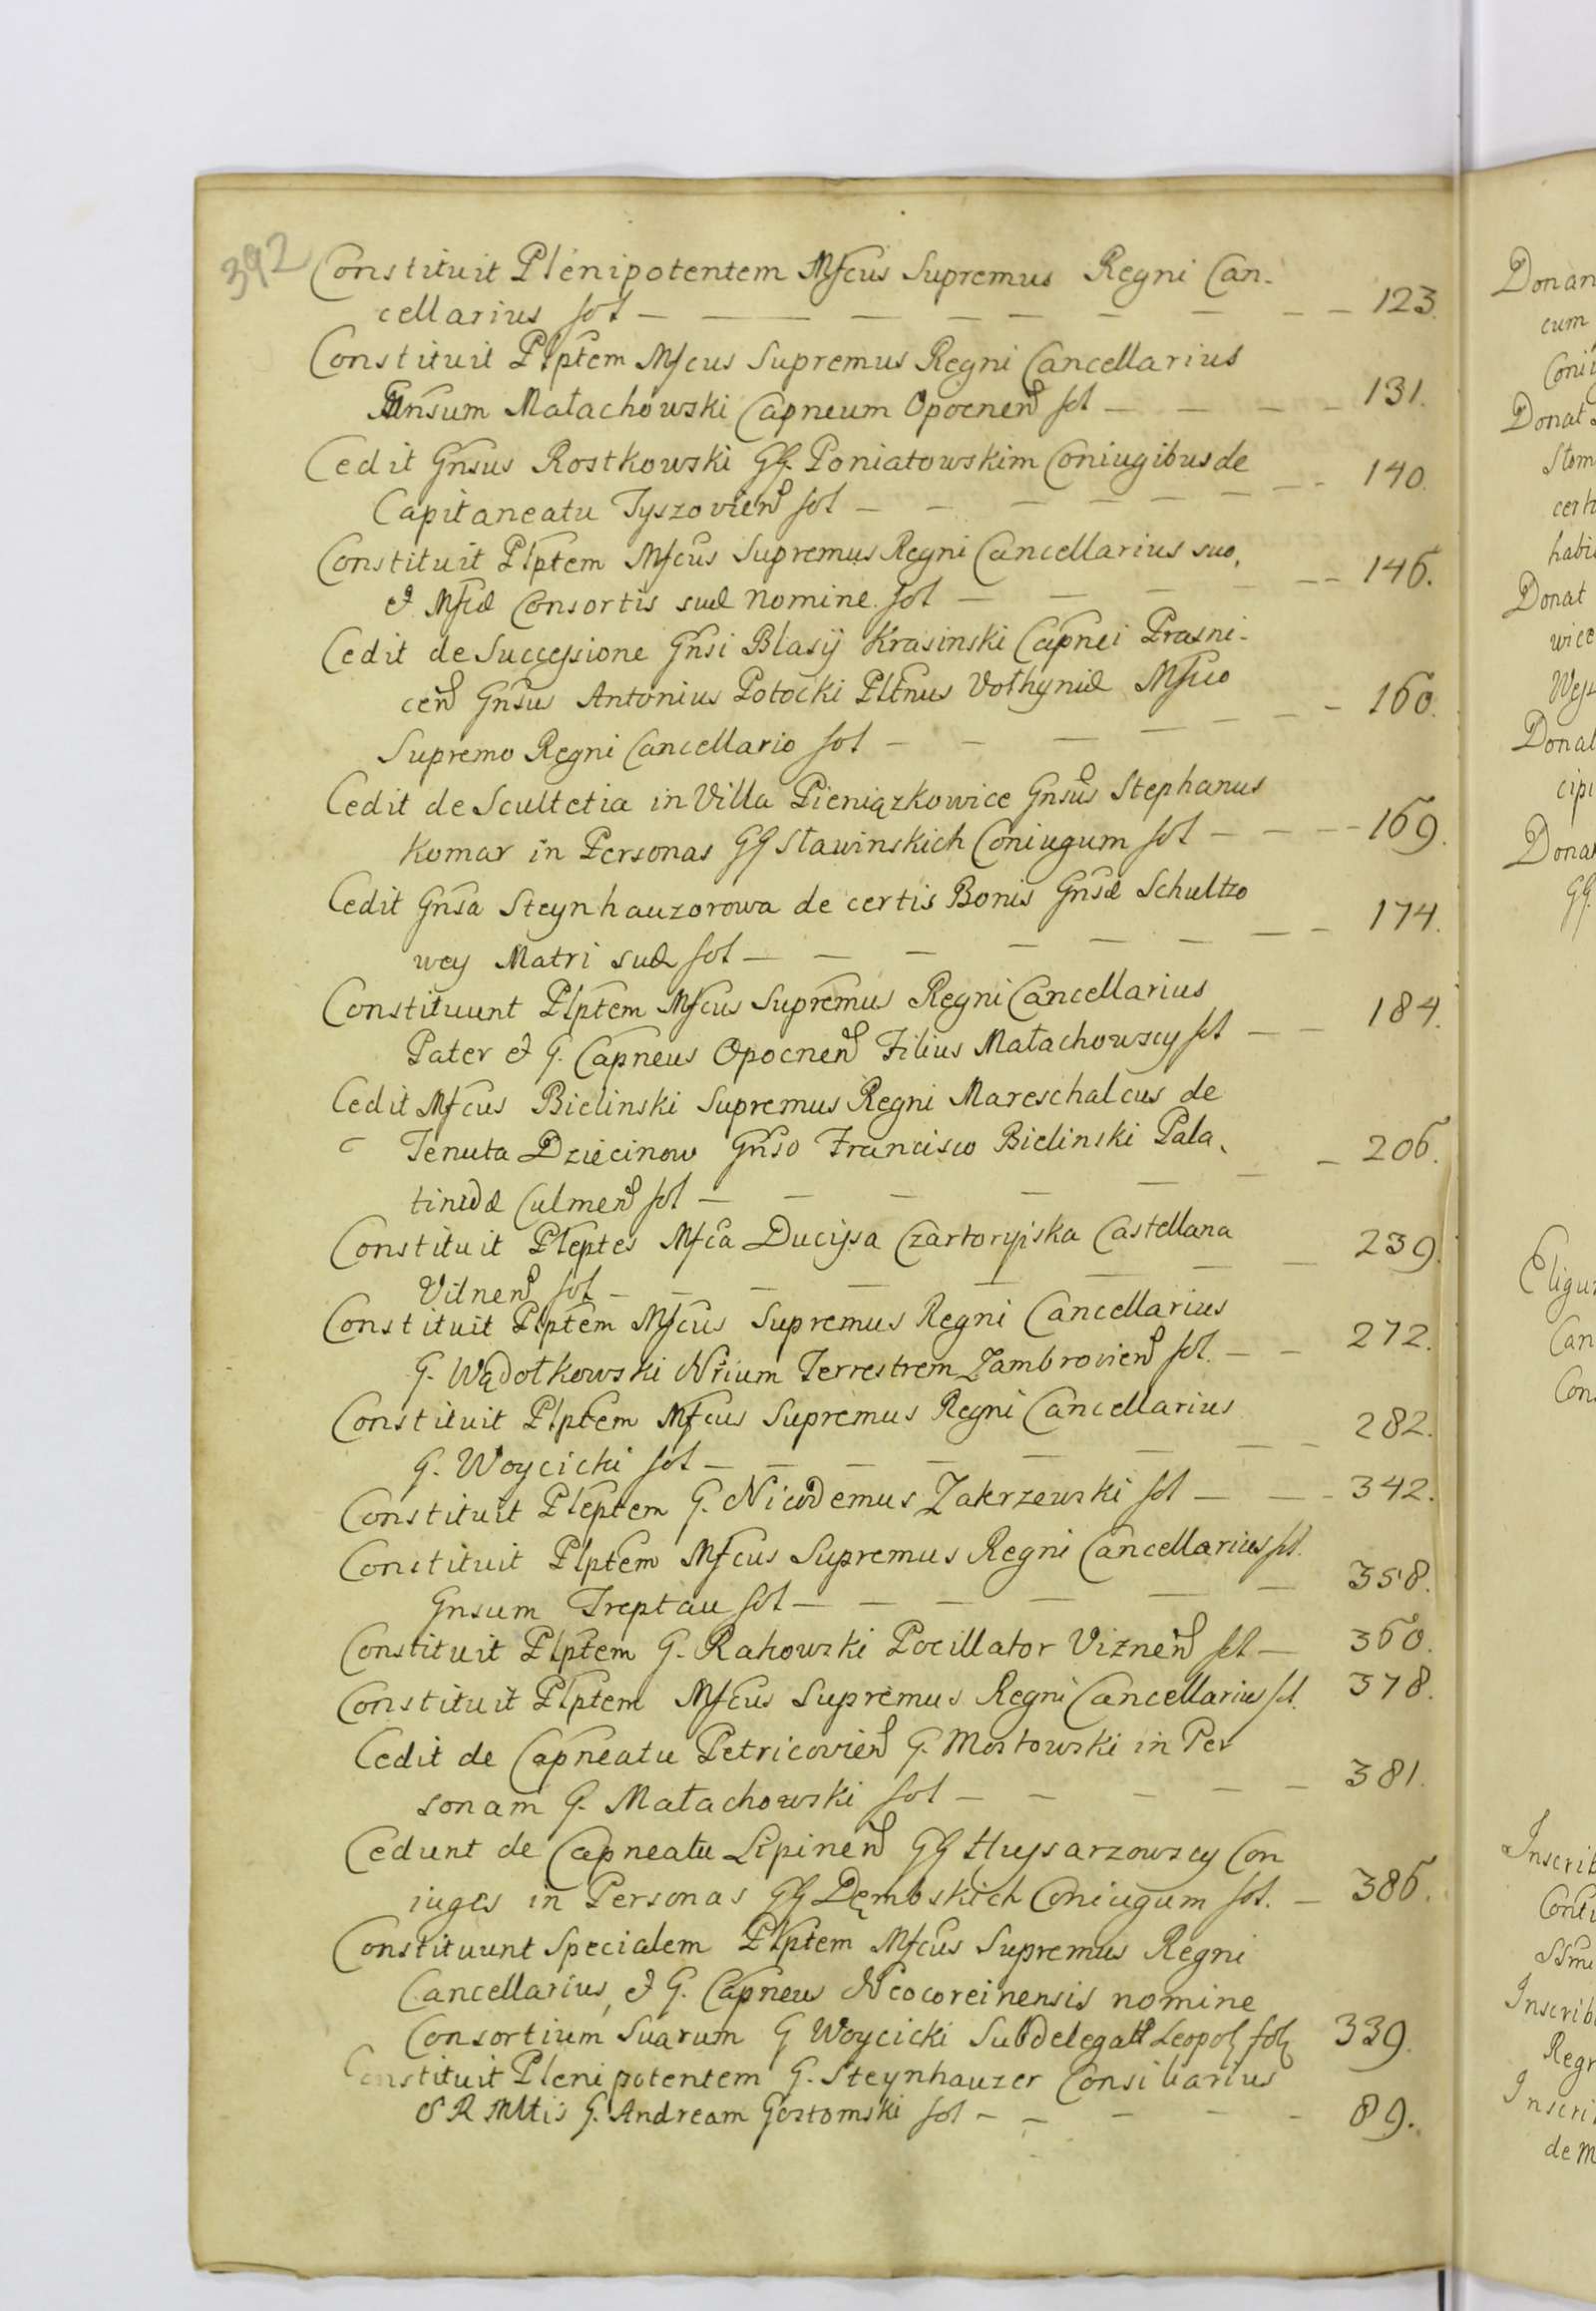 392
Constituit Plenipotentem Mfcus Supremus Regni Can-
cellarius fol — — — — — — — — — 123.
Constituit Plptem Mfcus Supremus Regni Cancellarius
Gnsum Małachowski Capneum Opocnen fol — — — — 131.
Cedit Gnsus Rostkowski GG. Poniatowskim Coniugibus de
Capitaneatu Tyszovien fol — — — — — — — — 140.
Constituit Plptem Mfcus Supremus Regni Cancellarius suo,
et Mfcæ Consortis suæ nomine fol — — — — — 146.
Cedit de Successione Gnsi Blasij Krasinski Capnei Prasni-
cen Gnsus Antonius Potocki Pltnus Vołhyniæ Mfco
Supremo Regni Cancellario fol — — — — — — — 160.
Cedit de Scultetia in Villa Pieniązkowice Gnsus Stephanus
Komar in Personas GG Sławinskich Coniugum fol — — — 169.
Cedit Gnsa Steynhauzorowa de certis Bonis Gnsæ Schultzo
wey Matri suæ fol — — — — — — — — 174.
Constituunt Plptem Mfcus Supremus Regni Cancellarius
Pater et G. Capneus Opocnen Filius Małachowscy fol — — 184.
Cedit Mfcus Bielinski Supremus Regni Mareschalcus de
Tenuta Dziecinow Gnso Francisco Bielinski Pala-
tinidæ Culmen fol — — — — — — — 206.
Constituit Pleptes Mfca Ducissa Czartoryiska Castellana
Vilnen fol — — — — — — — — 239.
Constituit Plptem Mfcus Supremus Regni Cancellarius
G. Wądołkowski Nrium Terrestrem Zambrovien fol. — — 272.
Constituit Plptem Mfcus Supremus Regni Cancellarius
G. Woycicki fol — — — — — — — — 282.
Constituit Pleptem G. Nicodemus Zakrzewski fol — — — 342.
Constituit Plptem Mfcus Supremus Regni Cancellarius fol.
Gnsum Treptau fol — — — — — — 358.
Constituit Plptem G. Rakowski Pocillator Viznen fol — 360.
Constituit Plptem Mfcus Supremus Regni Cancellarius fol. 378.
Cedit de Capneatu Petricovien G. Mostowski in Per
sonam G. Małachowski fol — — — — — 381.
Cedunt de Capneatu Lipinen GG Hussarzowscy Con
iuges in Personas GG Dęmbskich Coniugum fol. — 386.
Constituunt Specialem Plptem Mfcus Supremus Regni
Cancellarius, et G. Capneus Neocoreinensis nomine
Consortium Suarum G Woycicki Subdelegatt Leopol fol 339.
Constituit Plenipotentem G. Steynhauzer Consiliarius
S R Mttis G. Andream Gostomski fol — — — — — 89.
Donan
cum
Coni
Donat
Stom
cert
habi
Donat
wice
Donat
cipi
Donat
GG.
Eligu
Can
Con
Inscrib
Cont
Inscrib
Regn
Inscri
de M